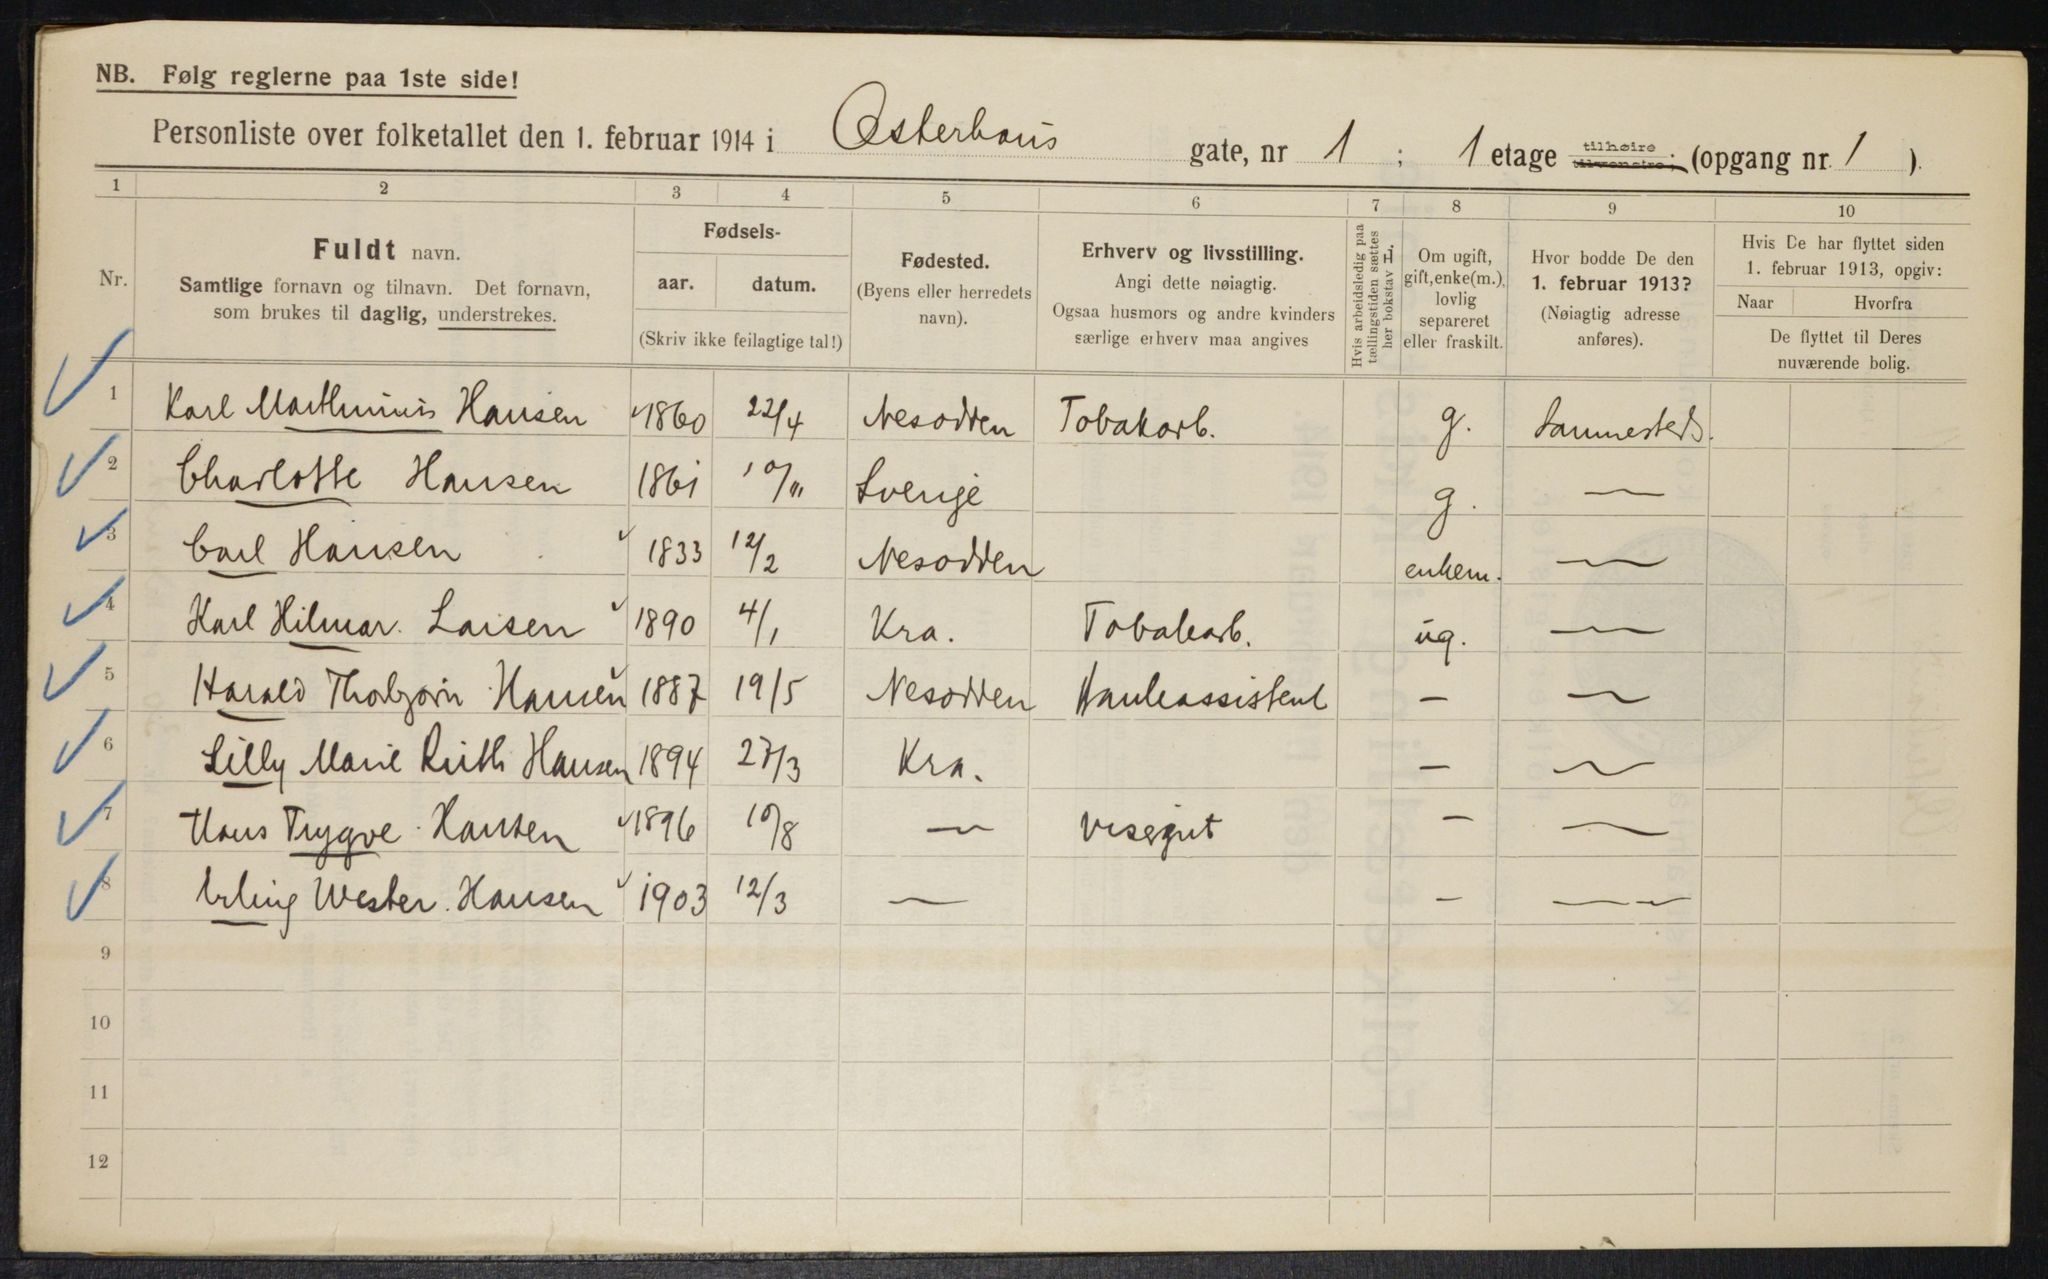 NB. Følg reglerne paa 1ste side!
Personliste over folketallet den 1. februar 1914 i Osterhaus gate, nr 1 ; 1 etage tilhøire tilvenstre; (opgang nr. 1 ).
1 2 3 4 5 6 7 8 9 10
Nr.
Fuldt navn.
Samtlige fornavn og tilnavn. Det fornavn,
som brukes til daglig, understrekes.
Fødsels-
aar. datum.
(Skriv ikke feilagtige tal!)
Fødested.
(Byens eller herredets
navn).
Erhverv og livsstilling.
Angi dette nøiagtig.
Ogsaa husmors og andre kvinders
særlige erhverv maa angives
Hvis arbeidsledig paa
tællingstiden sættes
her bokstav L.
Om ugift,
gift, enke(m.),
lovlig
separeret
eller fraskilt.
Hvor bodde De den
1. februar 1913?
(Nøiagtig adresse
anføres).
Hvis De har flyttet siden
1. februar 1913, opgiv:
Naar Hvorfra
De flyttet til Deres
nuværende bolig.
1 Karl Marthinius Hansen 1860 22/4 Nesodden Tobakarb. g. Sammesteds.
2 Charlotte Hansen 1861 10/11 Sverige g. —
3 Carl Hansen 1833 12/2 Nesodden enkem. —
4 Karl Hilmar. Larsen 1890 4/1 Kra. Tobakarb. ug. —
5 Harald Thorbjørn Hansen 1887 19/5 Nesodden — —
6 Lilly Marie Ruth Hansen 1894 27/3 Kra. — —
7 Hans Trygve Hansen 1896 10/8 — visergut — —
8 Erling Wester. Hansen 1903 12/3 — — — —
9
10
11
12